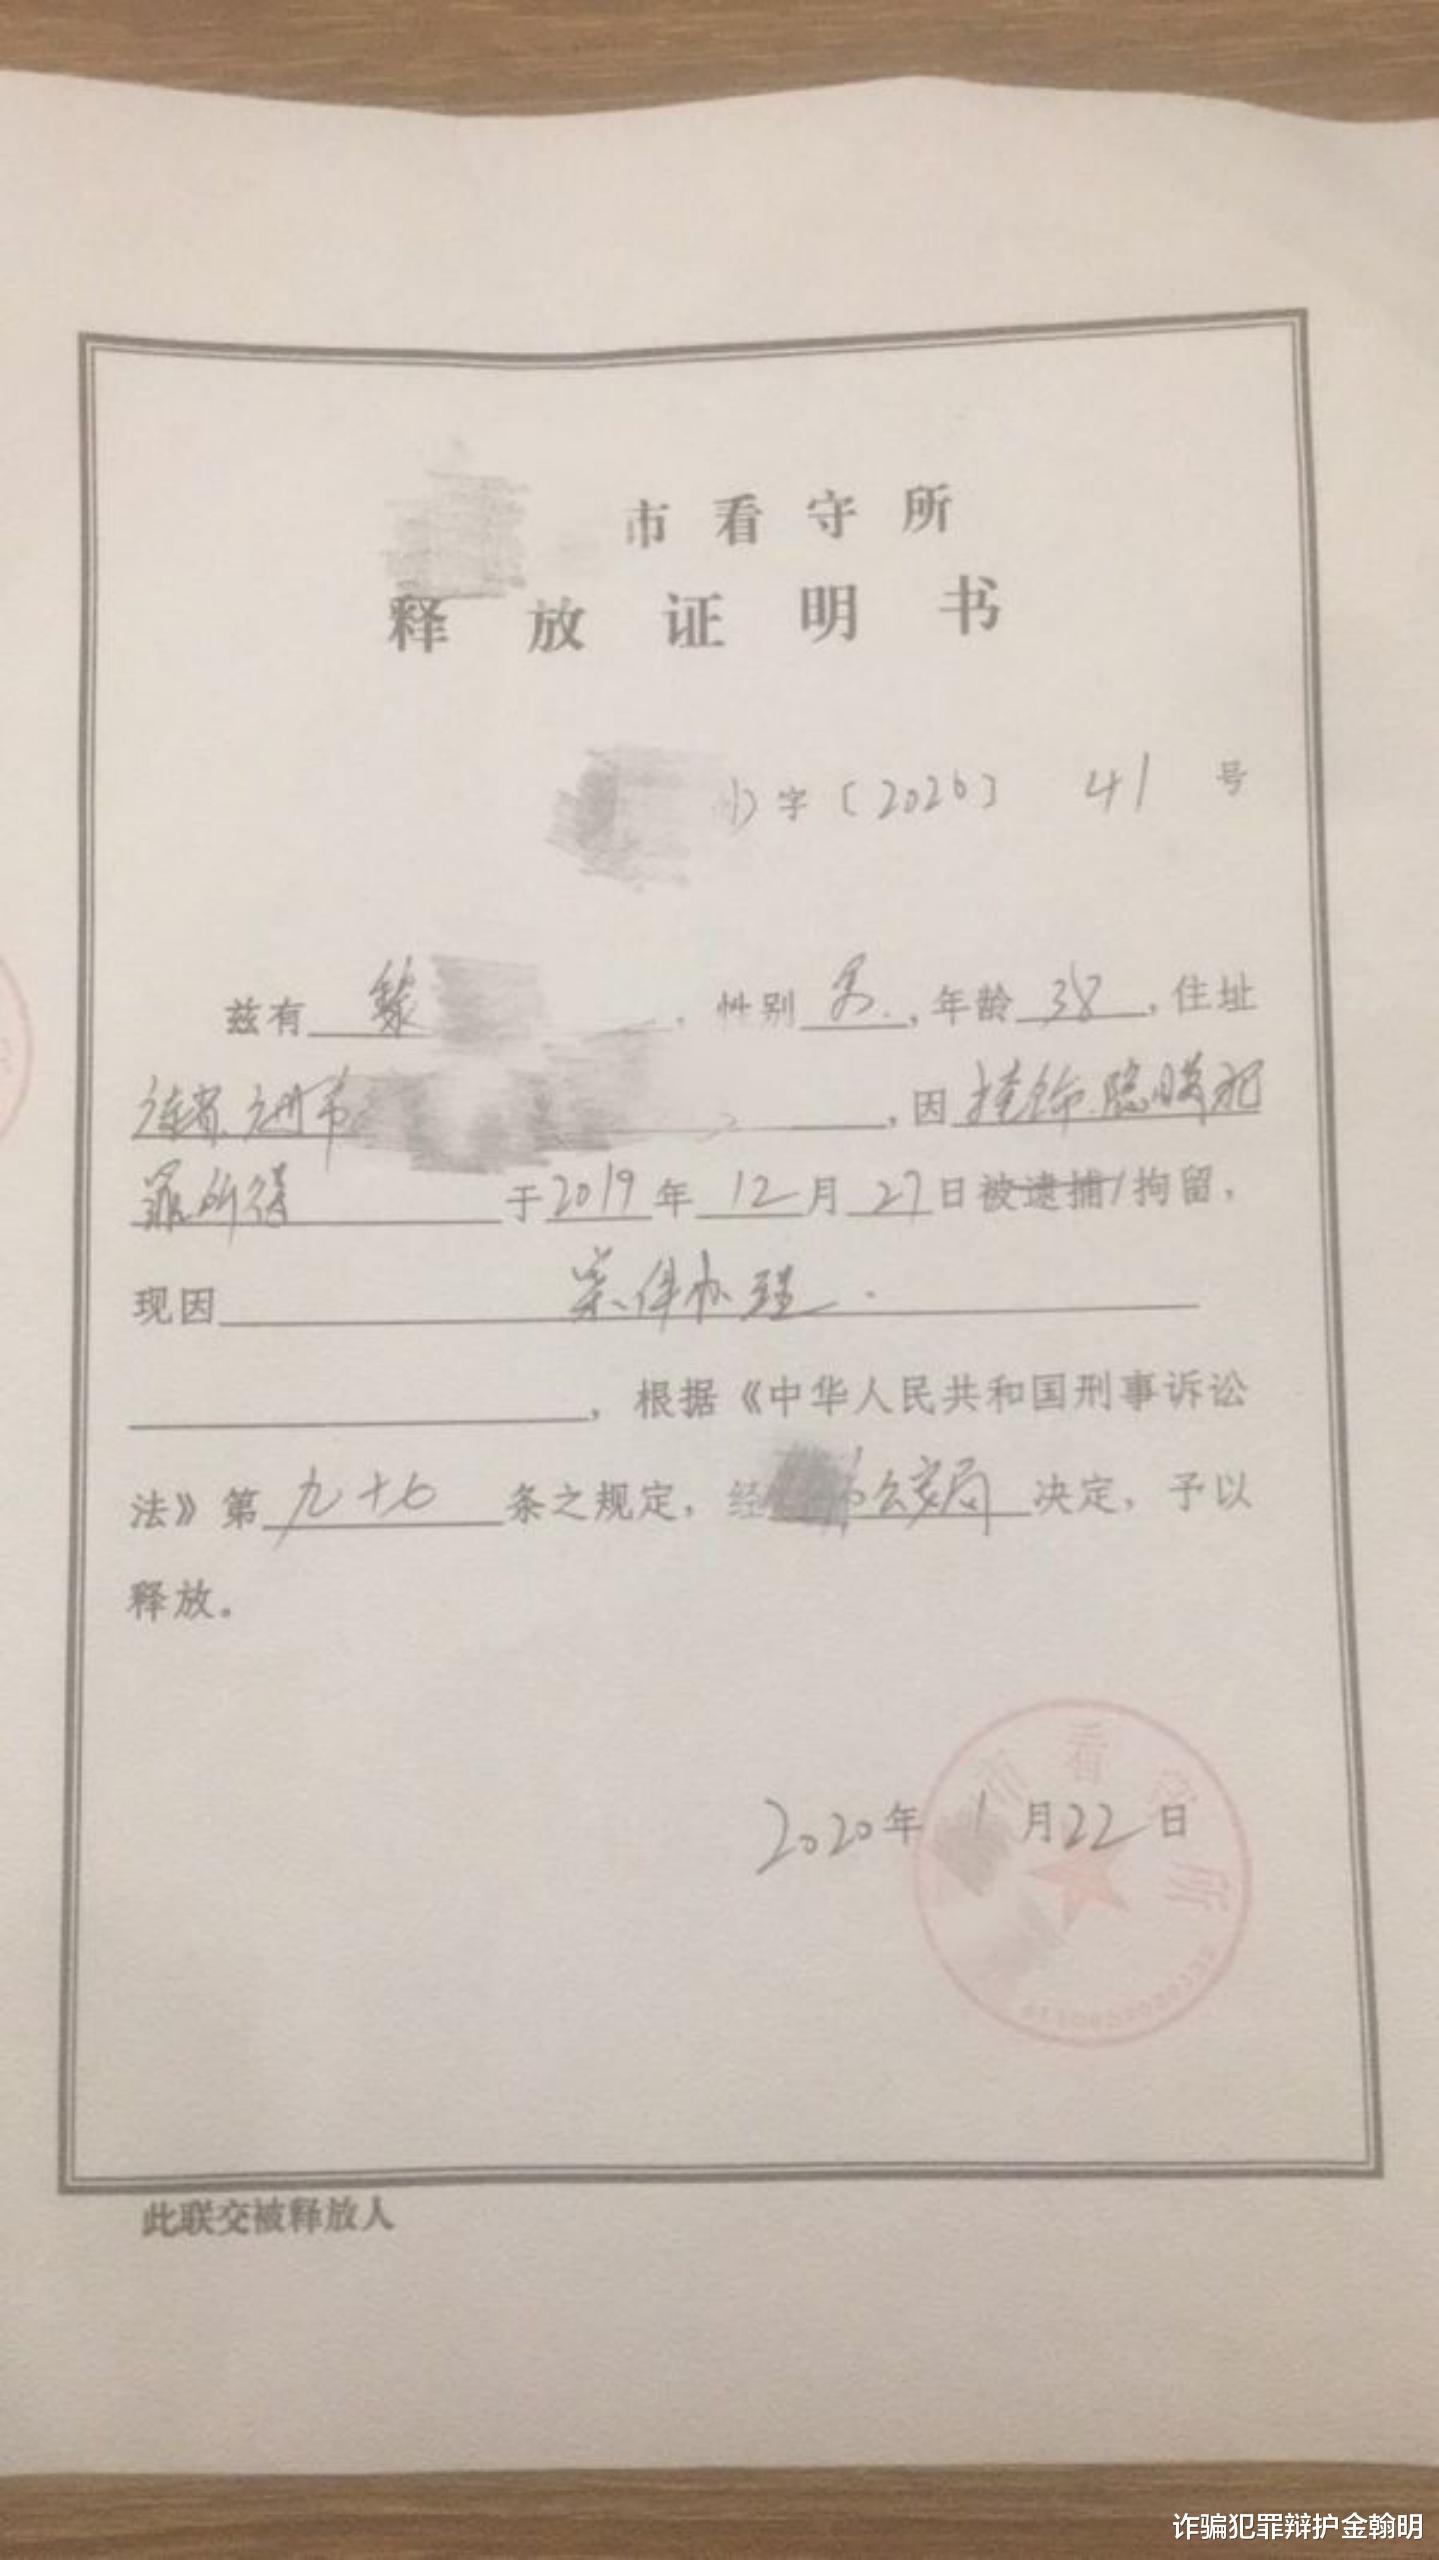 市看守所
释放证明书
字〔2020〕 41 号
兹有黎，性别男，年龄38，住址
广东省广州市，因掩饰、隐瞒犯
罪所得于2019年12月27日被逮捕/拘留，
现因案件办理
，根据《中华人民共和国刑事诉讼
法》第九十七条之规定，经市公安局决定，予以
释放。
看守所
2020年1月22日
此联交被释放人
诈骗犯罪辩护金翰明